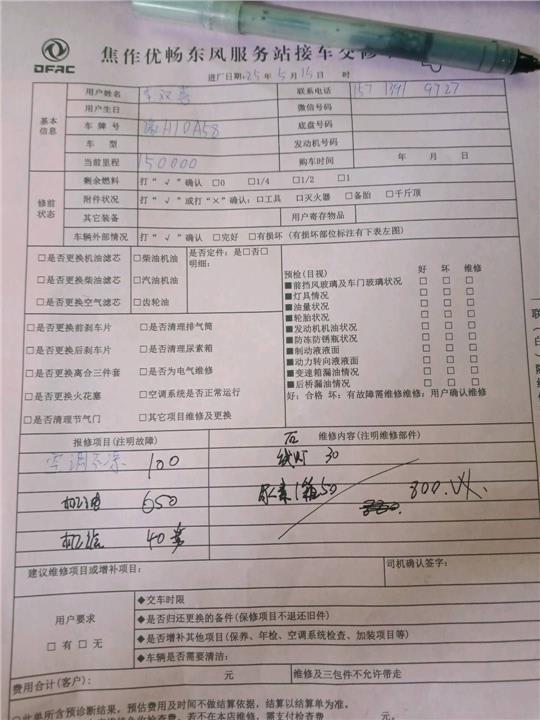 DFAC
焦作优畅东风服务站接车交修
进厂日期:25年5月15日 时
基本信息
用户姓名
联系电话 157 1391 9727
用户生日
微信号码
车牌号 豫H1DA58
底盘号码
车型
发动机号码
当前里程 150000
购车时间 年 月 日
修前状态
剩余燃料 打“√”确认 □0 □1/4 □1/2 □1
附件状况 打“√”或打“×”确认:□工具 □灭火器 □备胎 □千斤顶
其它装备 用户寄存物品
车辆外部情况 打“√”确认 □完好 □有损坏(有损坏部位标注有下表左图)
□是否更换机油滤芯 □柴油机油 是否定件:是□否□
明细:
□是否更换柴油滤芯 □汽油机油
□是否更换空气滤芯 □齿轮油
□是否更换前刹车片 □是否清理排气筒
□是否更换后刹车片 □是否清理尿素箱
□是否更换离合三件套 □是否为电气维修
□是否更换火花塞 □空调系统是否正常运行
□是否清理节气门 □其它项目维修及更换
预检(目视) 好 坏 维修
■前挡风玻璃及车门玻璃状况 □ □ □
■灯具情况 □ □ □
■油量状况 □ □ □
■轮胎状况 □ □ □
■发动机机油状况 □ □ □
■防冻防锈瓶状况 □ □ □
■制动液液面 □ □ □
■动力转向液液面 □ □ □
■变速箱漏油情况 □ □ □
■后桥漏油情况 □ □ □
好:合格 坏:有故障需维修维修:用户确认维修
报修项目(注明故障) 维修内容(注明维修部件)
空调不凉 100
30
650
尿素1箱50
800.
40
建议维修项目或增补项目:
司机确认签字:
用户要求
□有□无
◆交车时限
◆是否归还更换的备件(保修项目不退还旧件)
◆是否增补其他项目(保养、年检、空调系统检查、加装项目等)
◆车辆是否需要清洁:
费用合计(客户): 元 维修及三包件不允许带走
□此单所含预诊断结果,预估费用及时间不做结算依据,结算以结算单为准。
若不在本店维修,需支付检查费 元。
联
白